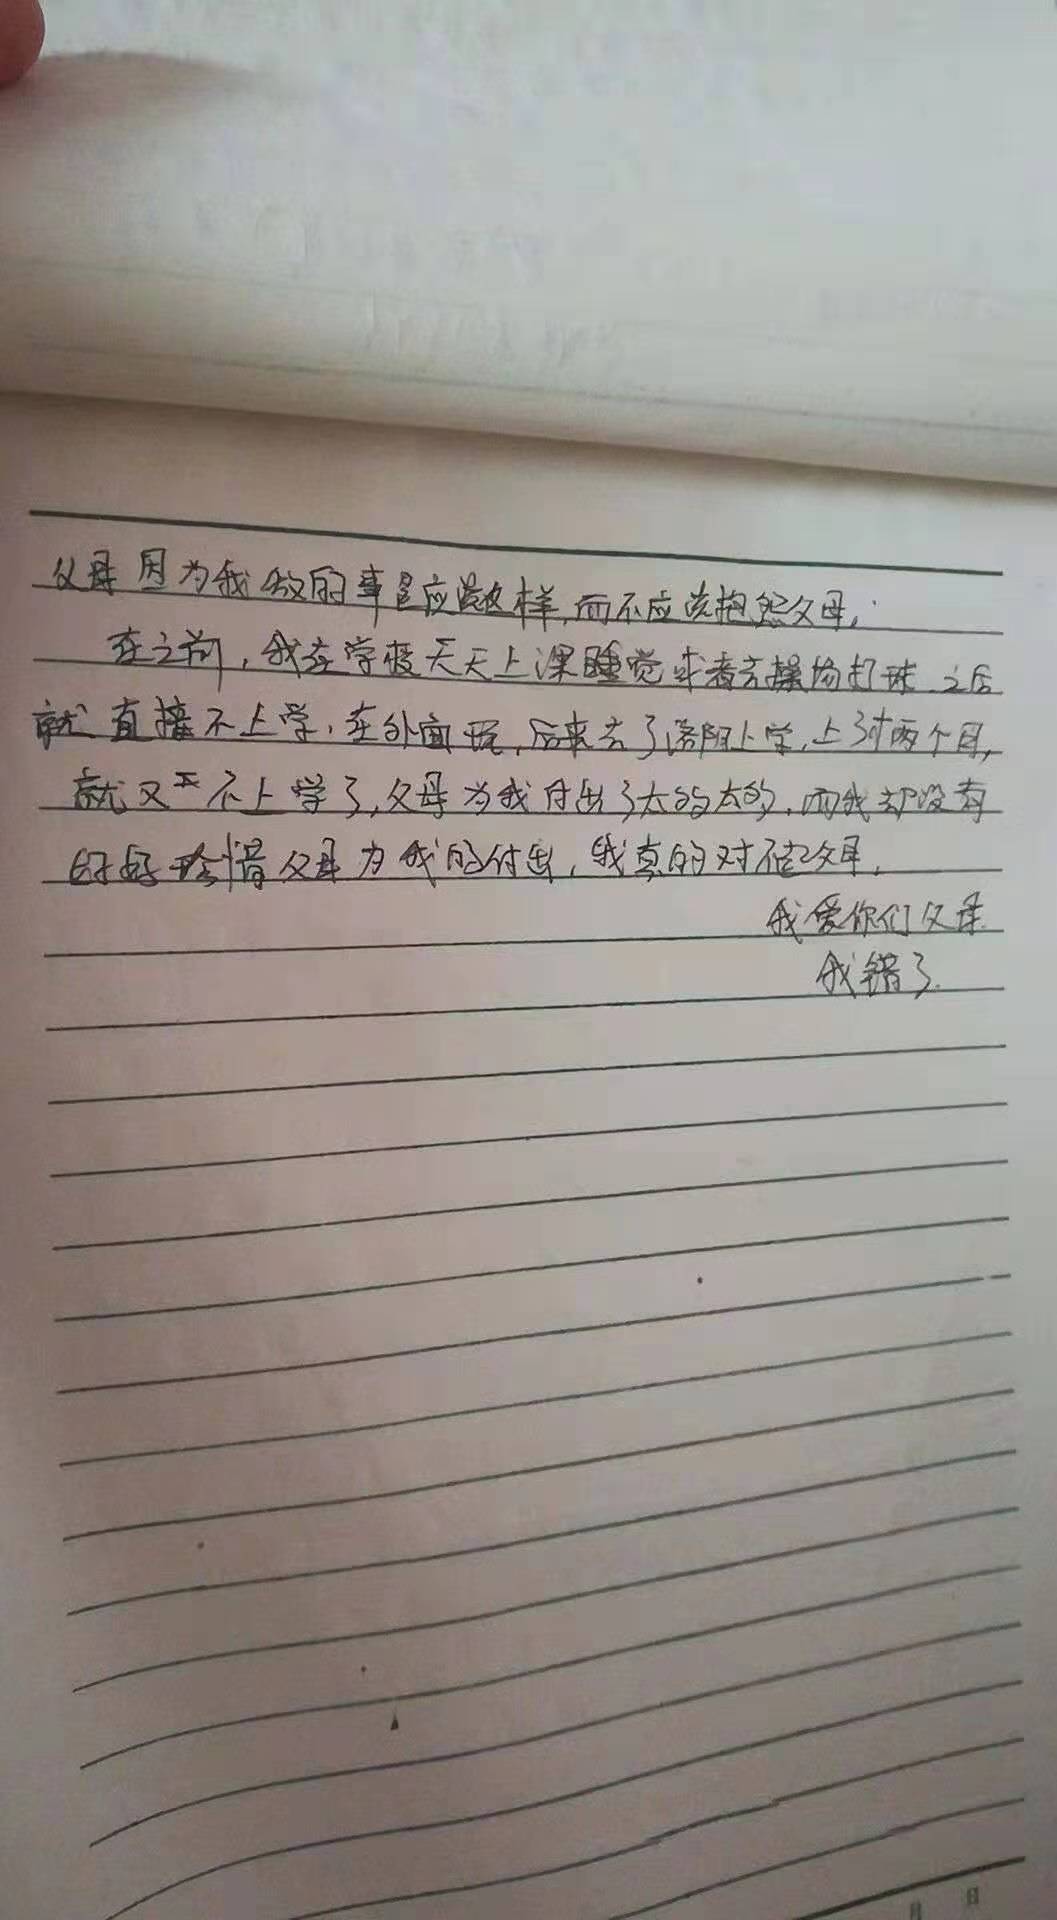 父母因为我做的事是应该这样,而不应该抱怨父母,
在之前,我在学校天天上课睡觉或者去操场打球.之后
就直接不上学,在外面玩,后来去了洛阳上学,上了才两个月,
就又不上学了,父母为我付出了太多太多,而我却没有
好好珍惜父母为我的付出,我真的对不起父母,
我爱你们父母
我错了.
月 日